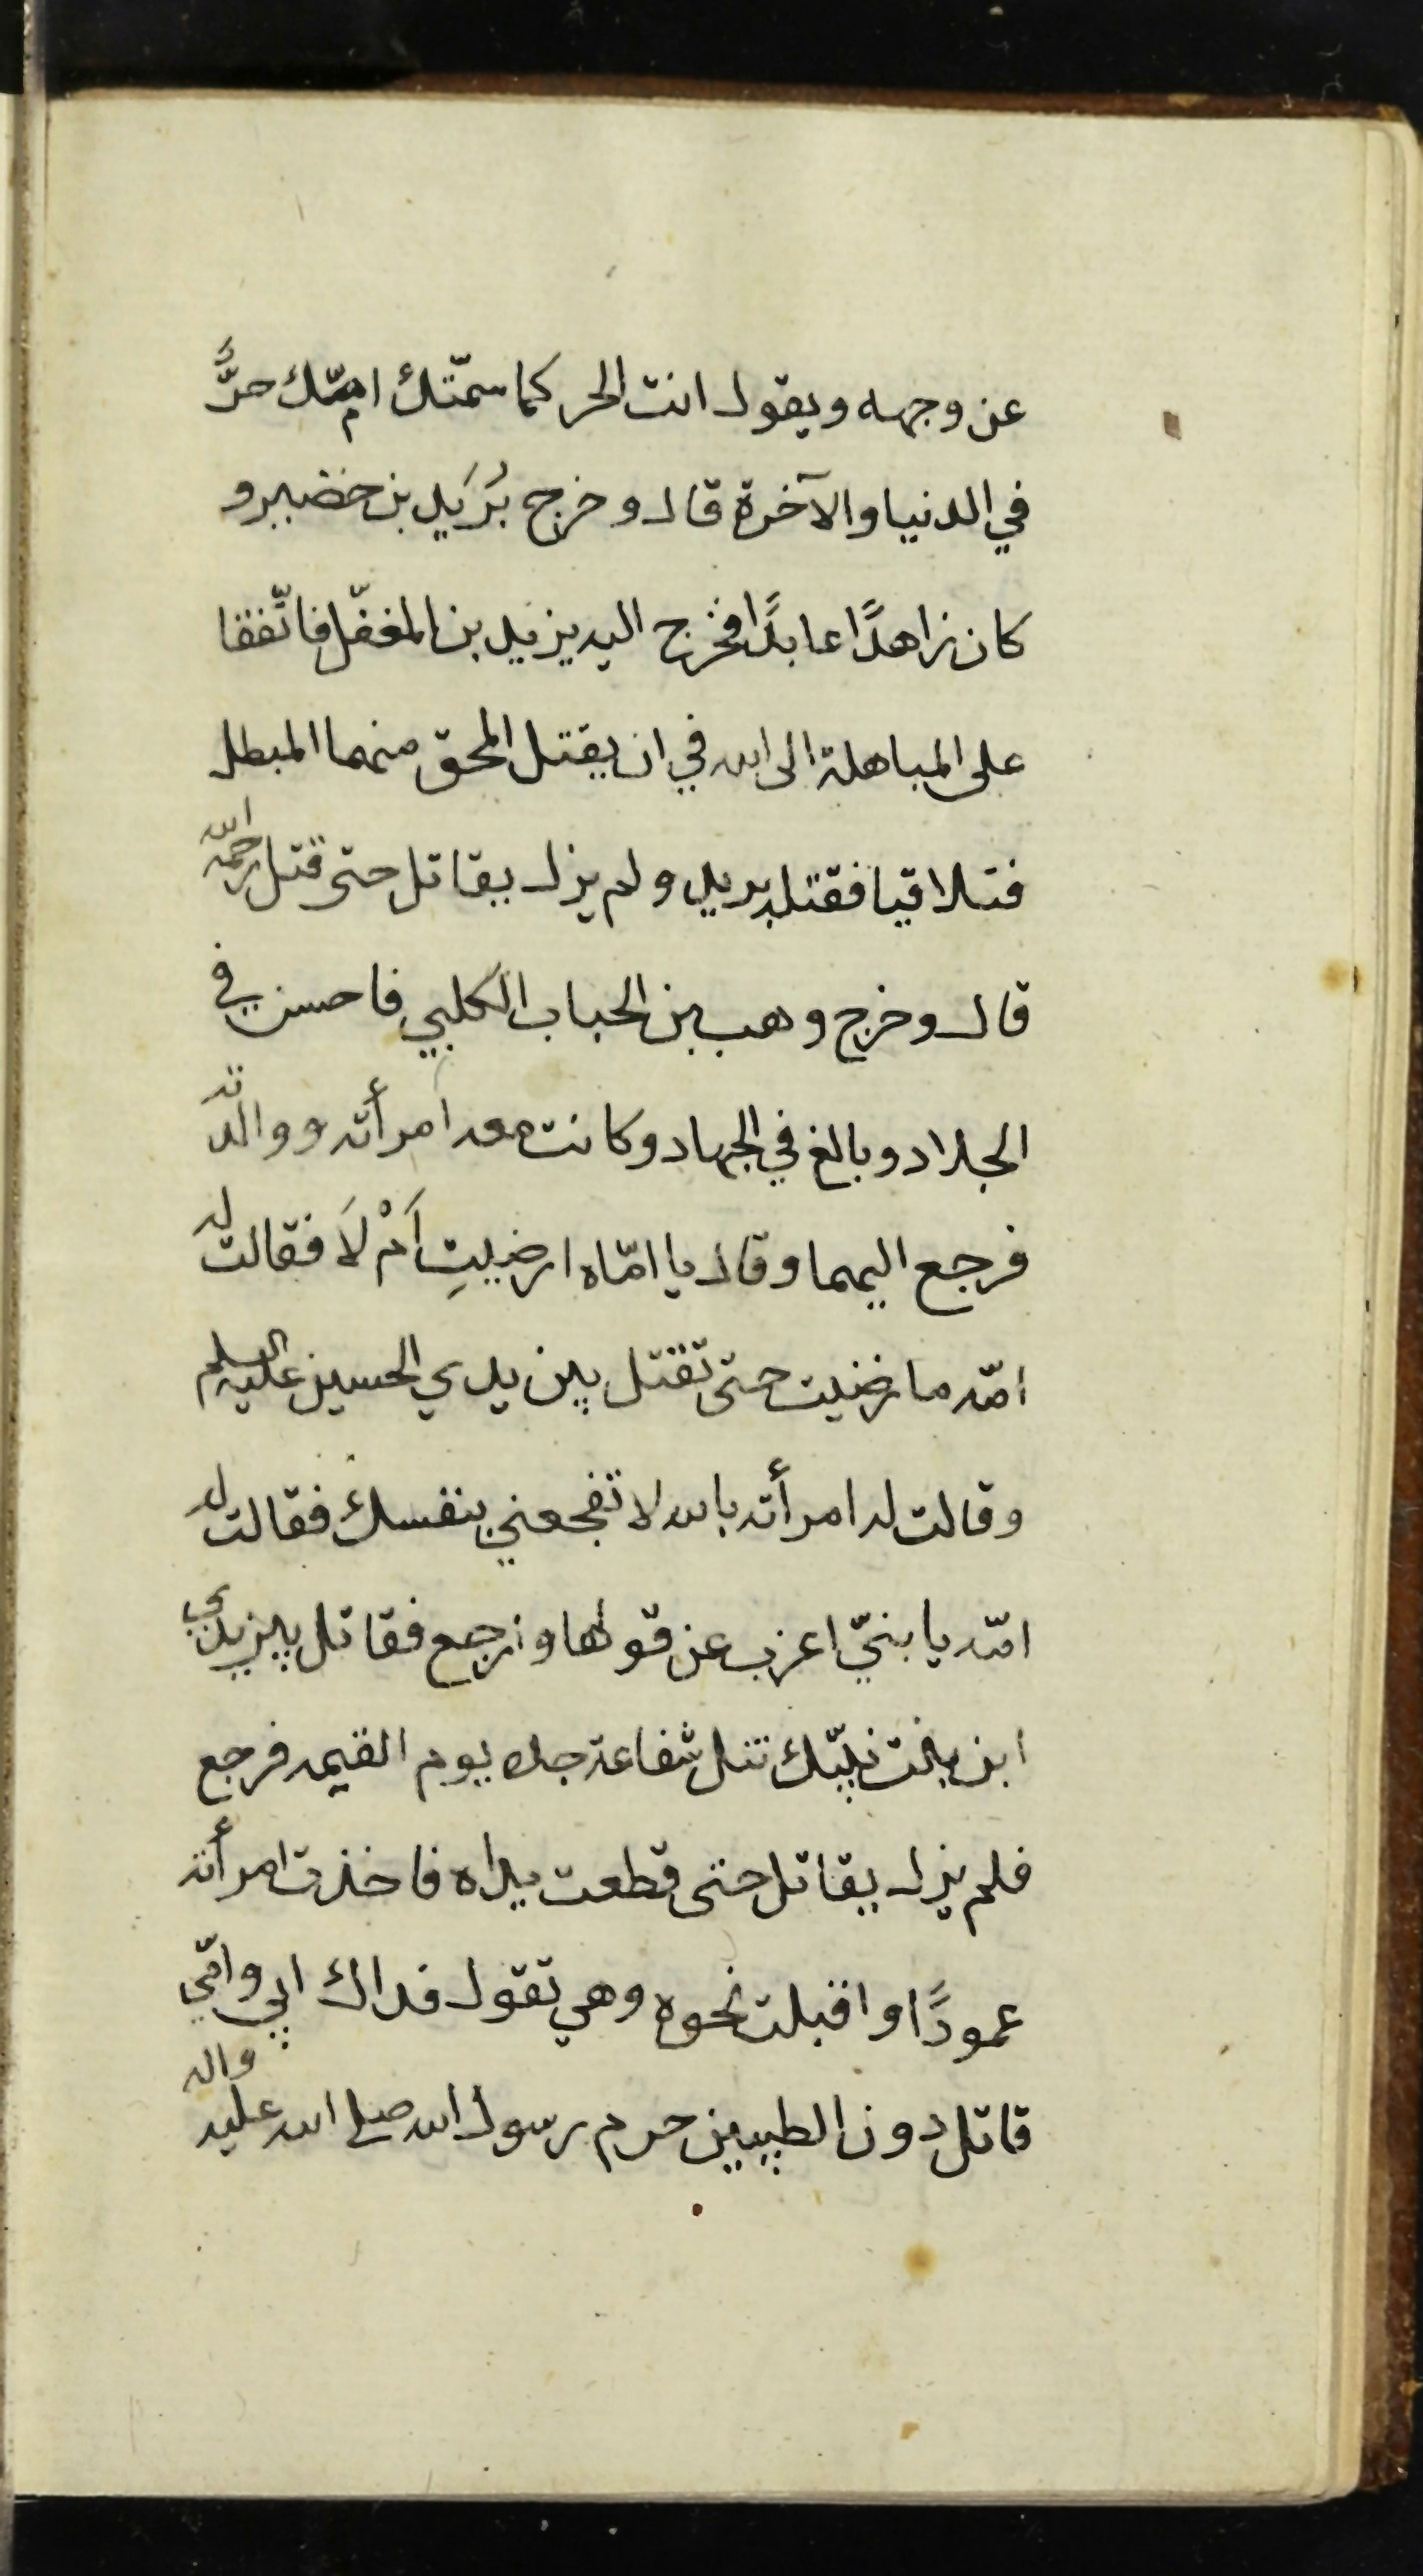 عن وجهه ويقول انت الحر كما سمّتك امّك حرًّ
في الدنيا والآخرة قال وخرج بُرَيد بن خضير و
كان زاهدًا عابدًا فخرج اليه يزيد بن المغفّل فاتّفقا
على المباهلة الى الله في ان يقتل المحق منهما المبطل
فتلاقيا فقتله بريد ولم يزل يقاتل حتى قتل رحمه الله
قال وخرج وهب بن الحباب الكلبي فاحسن في
الجلاد وبالغ في الجهاد وكانت معه امرأته ووالدته
فرجع اليهما وقال يا امّاه ارضيتِ اَمْ لَا فقالت له
امّه ما رضيت حتى تقتل بين يدي الحسين عليه السلم
وقالت له امرأته بالله لا تفجعني بنفسك فقالت له
امّه يا بنيّ اعزب عن قولها وارجع فقاتل بين يدي
ابن بنت نبيّك تنل شفاعة جده يوم القيمه فرجع
فلم يزل يقاتل حتى قطعت يداه فاخذت امرأته
عمودًا واقبلت نحوه وهي تقول فداك ابي وامّي
قاتل دون الطيبين حرم رسول الله صلى الله عليه واله